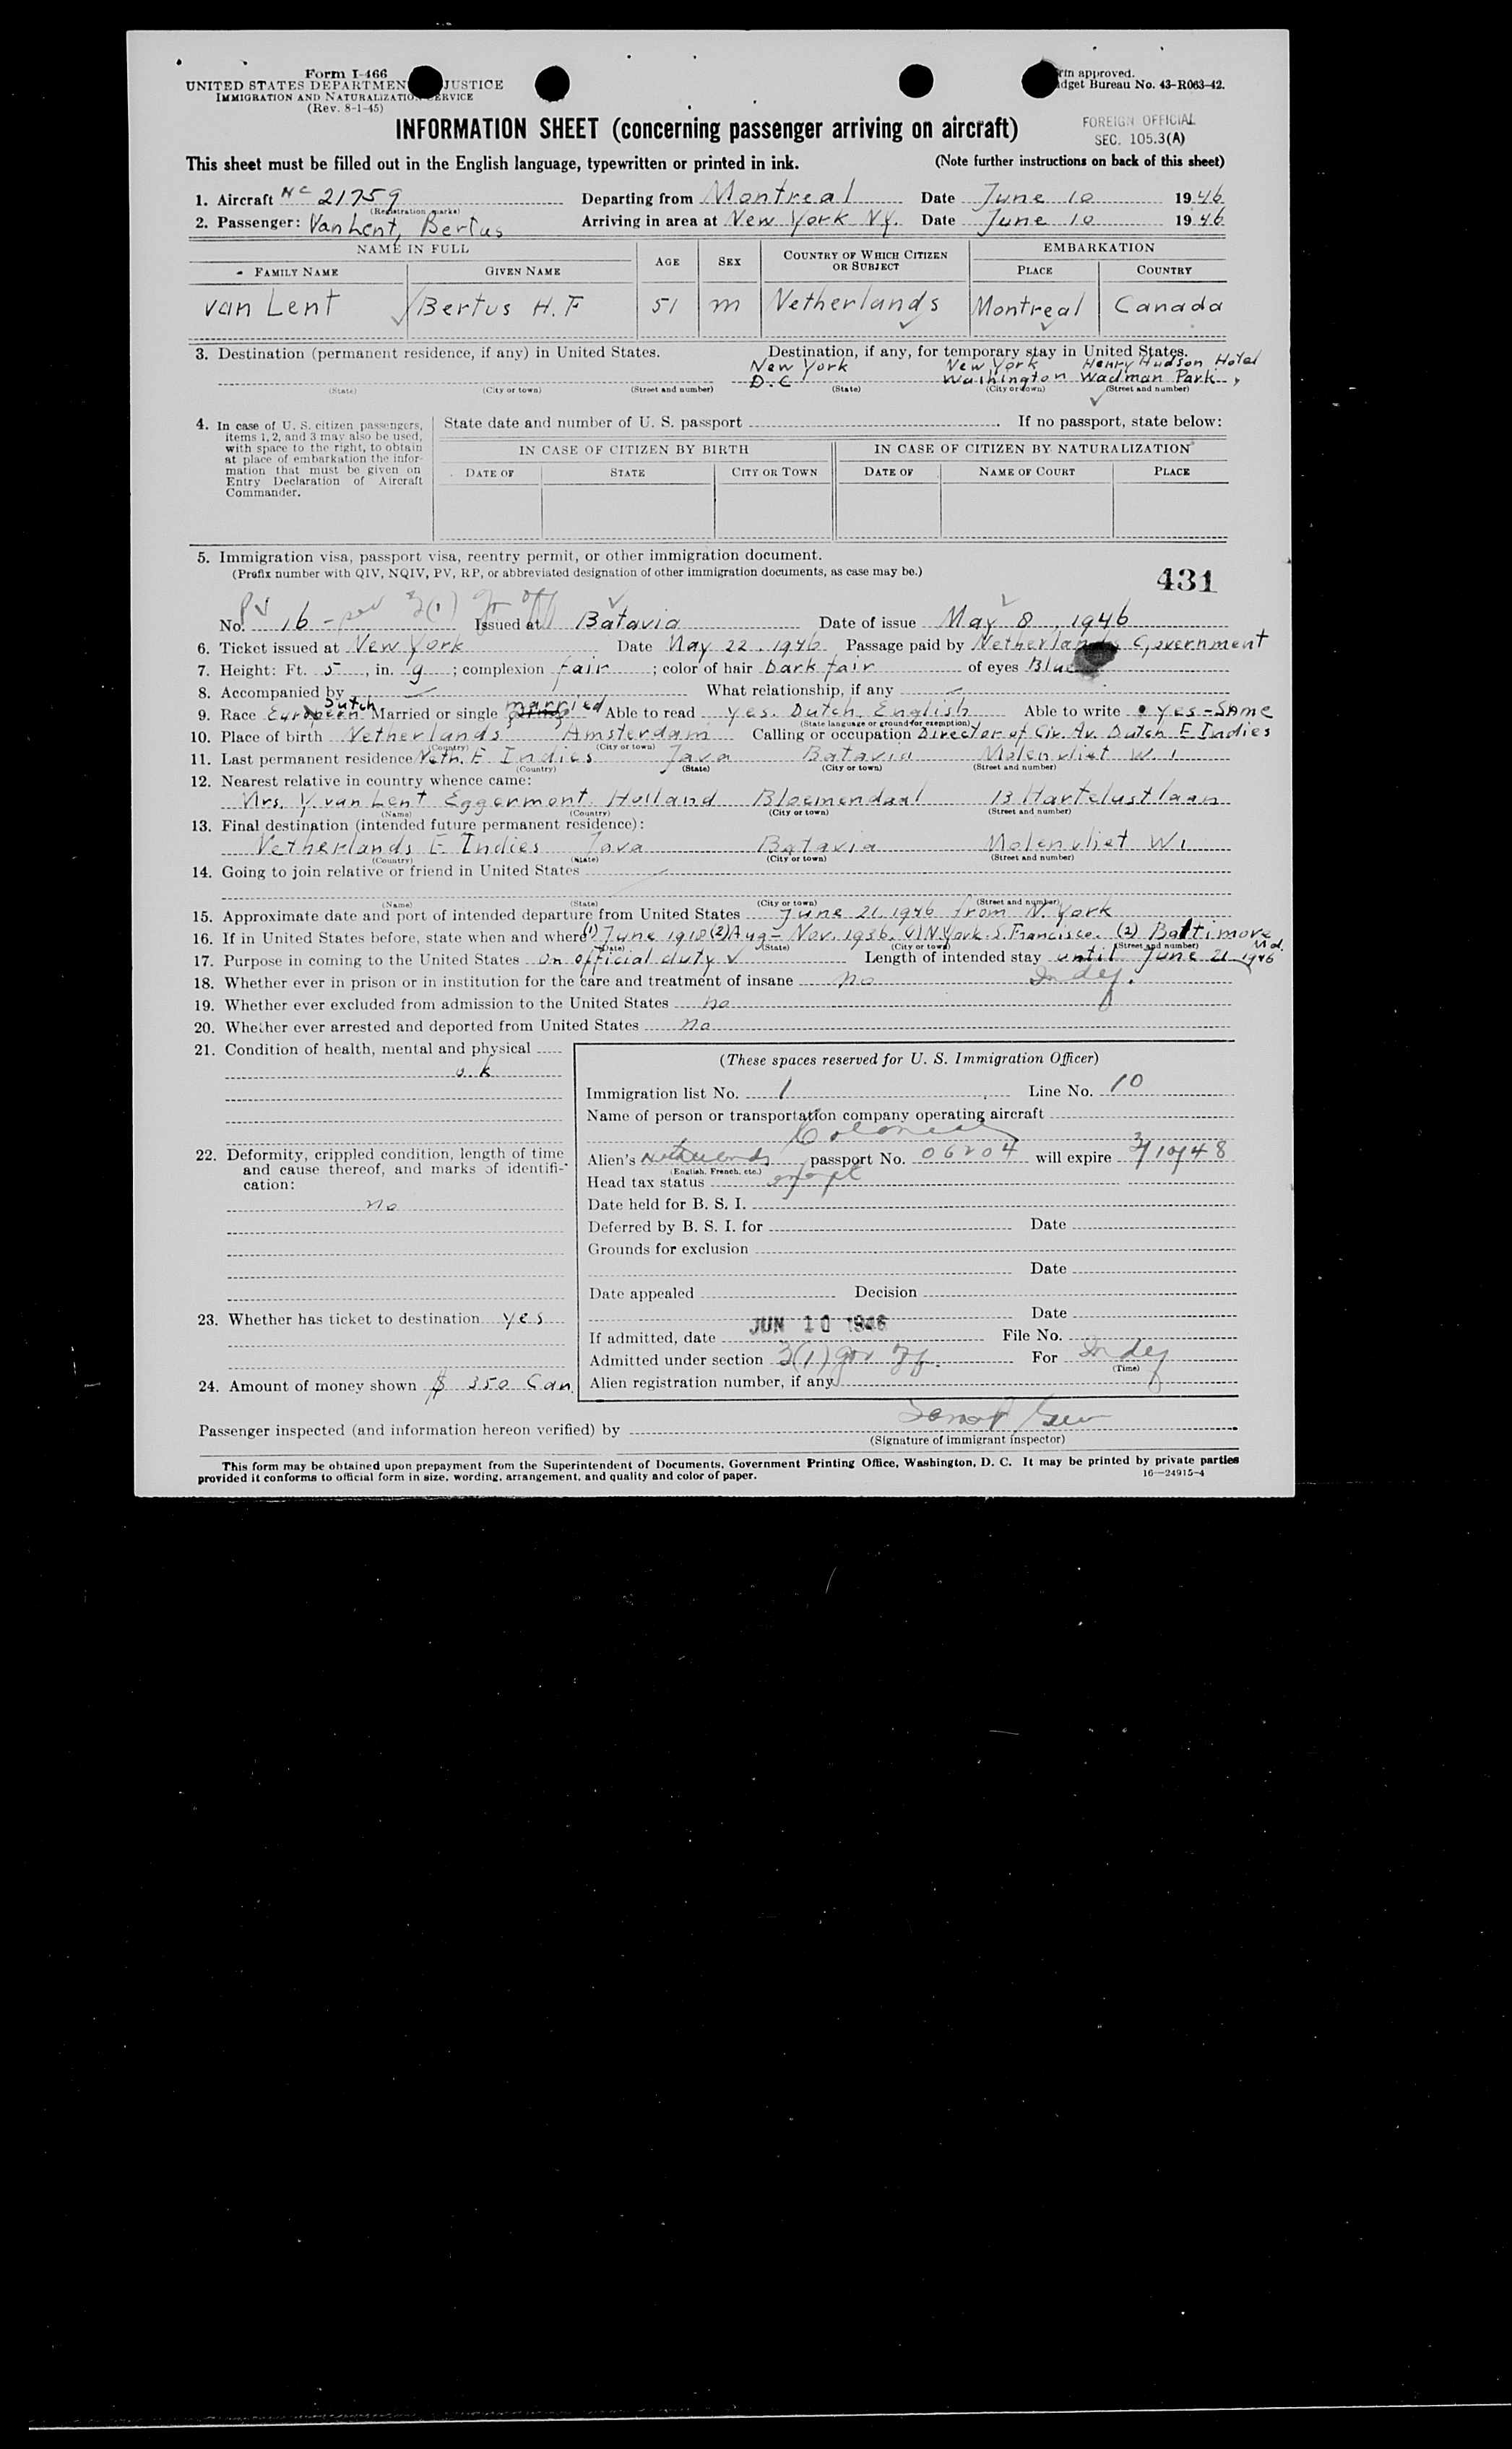 Form I-466
UNITED STATES DEPARTMENT JUSTICE
IMMIGRATION AND NATURALIZATION SERVICE
(Rev. 8-1-45)
approved.
Budget Bureau No. 43-R063-42.
INFORMATION SHEET (concerning passenger arriving on aircraft)
FOREIGN OFFICIAL
SEC. 105.3(A)
This sheet must be filled out in the English language, typewritten or printed in ink. (Note further instructions on back of this sheet)
1. Aircraft NC 21759 Departing from Montreal Date June 10 1946
(Registration marks)
2. Passenger: Van Lent, Bertus Arriving in area at New York N.Y. Date June 10 1946
NAME IN FULL AGE SEX COUNTRY OF WHICH CITIZEN OR SUBJECT EMBARKATION
FAMILY NAME GIVEN NAME PLACE COUNTRY
van Lent Bertus H. F 51 m Netherlands Montreal Canada
3. Destination (permanent residence, if any) in United States. Destination, if any, for temporary stay in United States.
New York New York Henry Hudson Hotel
D C Washington Wadman Park
(State) (City or town) (Street and number) (State) (City or town) (Street and number)
4. In case of U. S. citizen passengers, items 1, 2, and 3 may also be used, with space to the right, to obtain at place of embarkation the information that must be given on Entry Declaration of Aircraft Commander.
State date and number of U. S. passport . If no passport, state below:
IN CASE OF CITIZEN BY BIRTH IN CASE OF CITIZEN BY NATURALIZATION
DATE OF STATE CITY OR TOWN DATE OF NAME OF COURT PLACE
5. Immigration visa, passport visa, reentry permit, or other immigration document.
(Prefix number with QIV, NQIV, PV, RP, or abbreviated designation of other immigration documents, as case may be.)
431
No. PV 16 - 3(1) Issued at Batavia Date of issue May 8, 1946
6. Ticket issued at New York Date May 22, 1946 Passage paid by Netherlands Government
7. Height: Ft. 5, in. 9; complexion fair; color of hair dark fair of eyes Blue
8. Accompanied by What relationship, if any
9. Race European Dutch Married or single married Able to read yes. Dutch, English Able to write yes - same
(State language or ground for exemption)
10. Place of birth Netherlands Amsterdam Calling or occupation Director of Civ. Av. Dutch E Indies
(Country) (City or town)
11. Last permanent residence Neth. E Indies Java Batavia Molenvliet W. 1
(Country) (State) (City or town) (Street and number)
12. Nearest relative in country whence came:
Mrs. Y. van Lent Eggermont Holland Bloemendaal 13 Hartelustlaan
(Name) (Country) (City or town) (Street and number)
13. Final destination (intended future permanent residence):
Netherlands E Indies Java Batavia Molenvliet W 1
(Country) (State) (City or town) (Street and number)
14. Going to join relative or friend in United States
(Name) (State) (City or town) (Street and number)
15. Approximate date and port of intended departure from United States June 21, 1946 from N. York
16. If in United States before, state when and where (1) June 1918 (2) Aug - Nov. 1936. (1) N York - S. Francisco. (2) Baltimore Md.
(Date) (State) (City or town) (Street and number)
17. Purpose in coming to the United States on official duty Length of intended stay until June 21 1946
18. Whether ever in prison or in institution for the care and treatment of insane no Indef.
19. Whether ever excluded from admission to the United States no
20. Whether ever arrested and deported from United States no
21. Condition of health, mental and physical
o.k
22. Deformity, crippled condition, length of time and cause thereof, and marks of identification:
no
23. Whether has ticket to destination yes
24. Amount of money shown $ 350 Can
(These spaces reserved for U. S. Immigration Officer)
Immigration list No. 1 Line No. 10
Name of person or transportation company operating aircraft
Colonial
Alien's Netherlands passport No. 06204 will expire 3/10/48
(English, French, etc.)
Head tax status exempt
Date held for B. S. I.
Deferred by B. S. I. for Date
Grounds for exclusion
Date
Date appealed Decision
Date
If admitted, date JUN 10 1946 File No.
Admitted under section 3(1) gov off. For Indef
(Time)
Alien registration number, if any
Passenger inspected (and information hereon verified) by
(Signature of immigrant inspector)
This form may be obtained upon prepayment from the Superintendent of Documents, Government Printing Office, Washington, D. C. It may be printed by private parties
provided it conforms to official form in size, wording, arrangement, and quality and color of paper. 16—24915-4